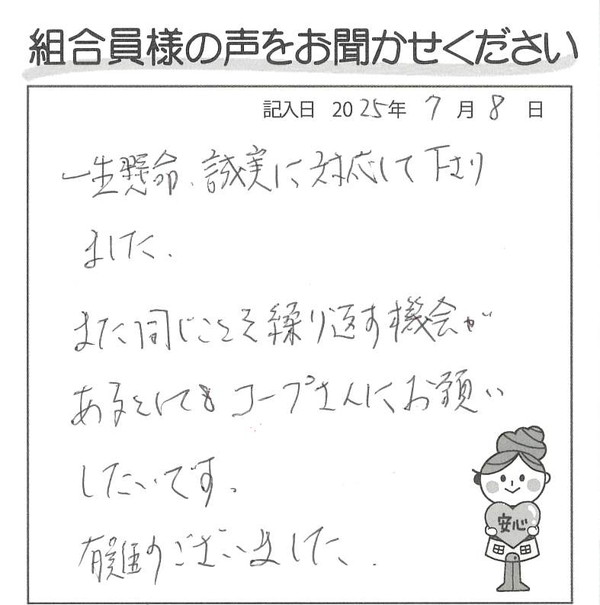 組合員様の声をお聞かせください
記入日 2025年 7月 8日
一生懸命、誠実に対応して下さり
ました。
また同じことを繰り返す機会が
あるとしても コープさんにお願い
したいです。
有難うございました。
安心